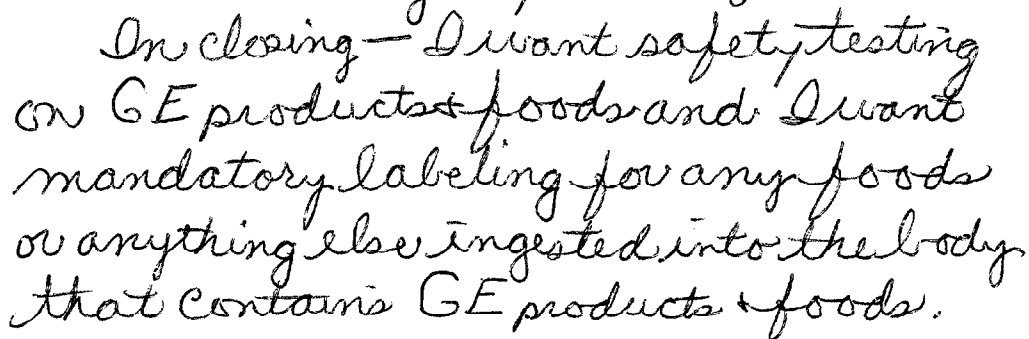 In closing — I want safety testing
on GE products & foods and I want
mandatory labeling for any foods
or anything else ingested into the body
that contains GE products & foods.